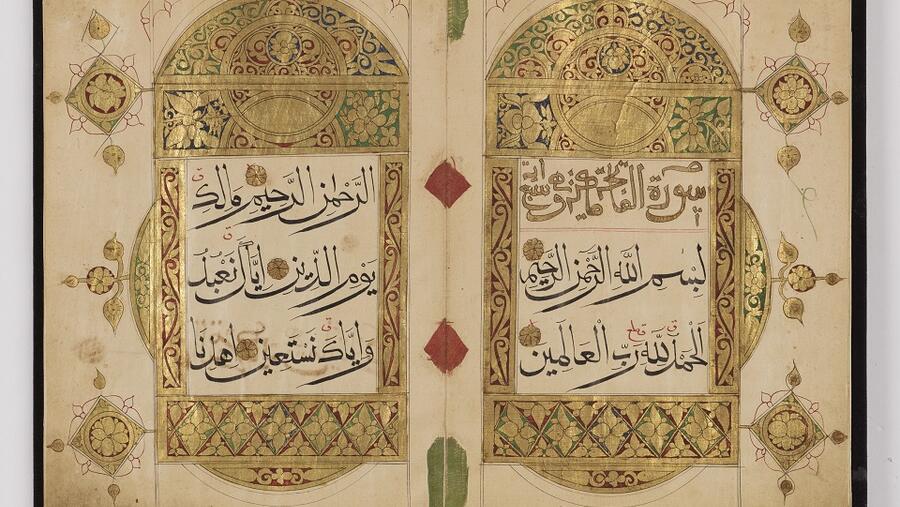 سورة الفاتحة مكية وهي سبع آية
بِسْمِ اللّٰهِ الرَّحْمٰنِ الرَّحِيمِ
اَلْحَمْدُ لِلّٰهِ رَبِّ الْعَالَمِينَ
الرَّحْمٰنِ الرَّحِيمِ مٰلِكِ
يَوْمِ الدِّينِ اِيَّاكَ نَعْبُدُ
وَاِيَّاكَ نَسْتَعِينُ اِهْدِنَا